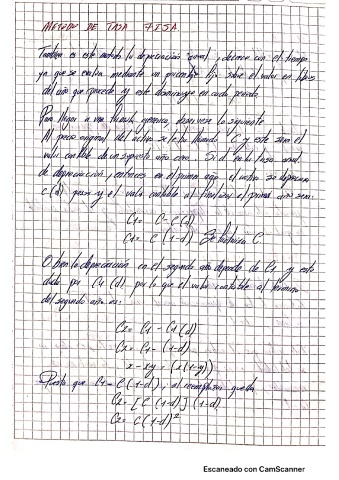 METODO DE TASA FISA.
También es este metodo la depreciación anual, decrece con el tiempo
ya que se evalua mediante un porcentaje fijo sobre el valor en libros
del año que precede y este disminuye en cada periodo.
Para llegar a una formula general, observese lo siguiente
Al precio original del activo se le ha llamado C y este sera el
valor contable de un supuesto año cero. Si d es la tasa anual
de depreciación, entonces en el primer año el activo se deprecia
C(d) pesos y el valor contable al finalizar el primer año sera:
C1= C-C(d)
C1= C(1-d) Se factoriza C.
O bien la depreciación en el segundo año depende de C1 y esta
dada por C1(d) por lo que el valor contable al termino
del segundo año es:
C2= C1-C1(d)
C2= C1-(1-d)
x-xy = (x(1-y))
Puesto que C1=C(1-d), al reemplazar queda
C2=[C(1-d)](1-d)
C2= C(1-d)²
Escaneado con CamScanner